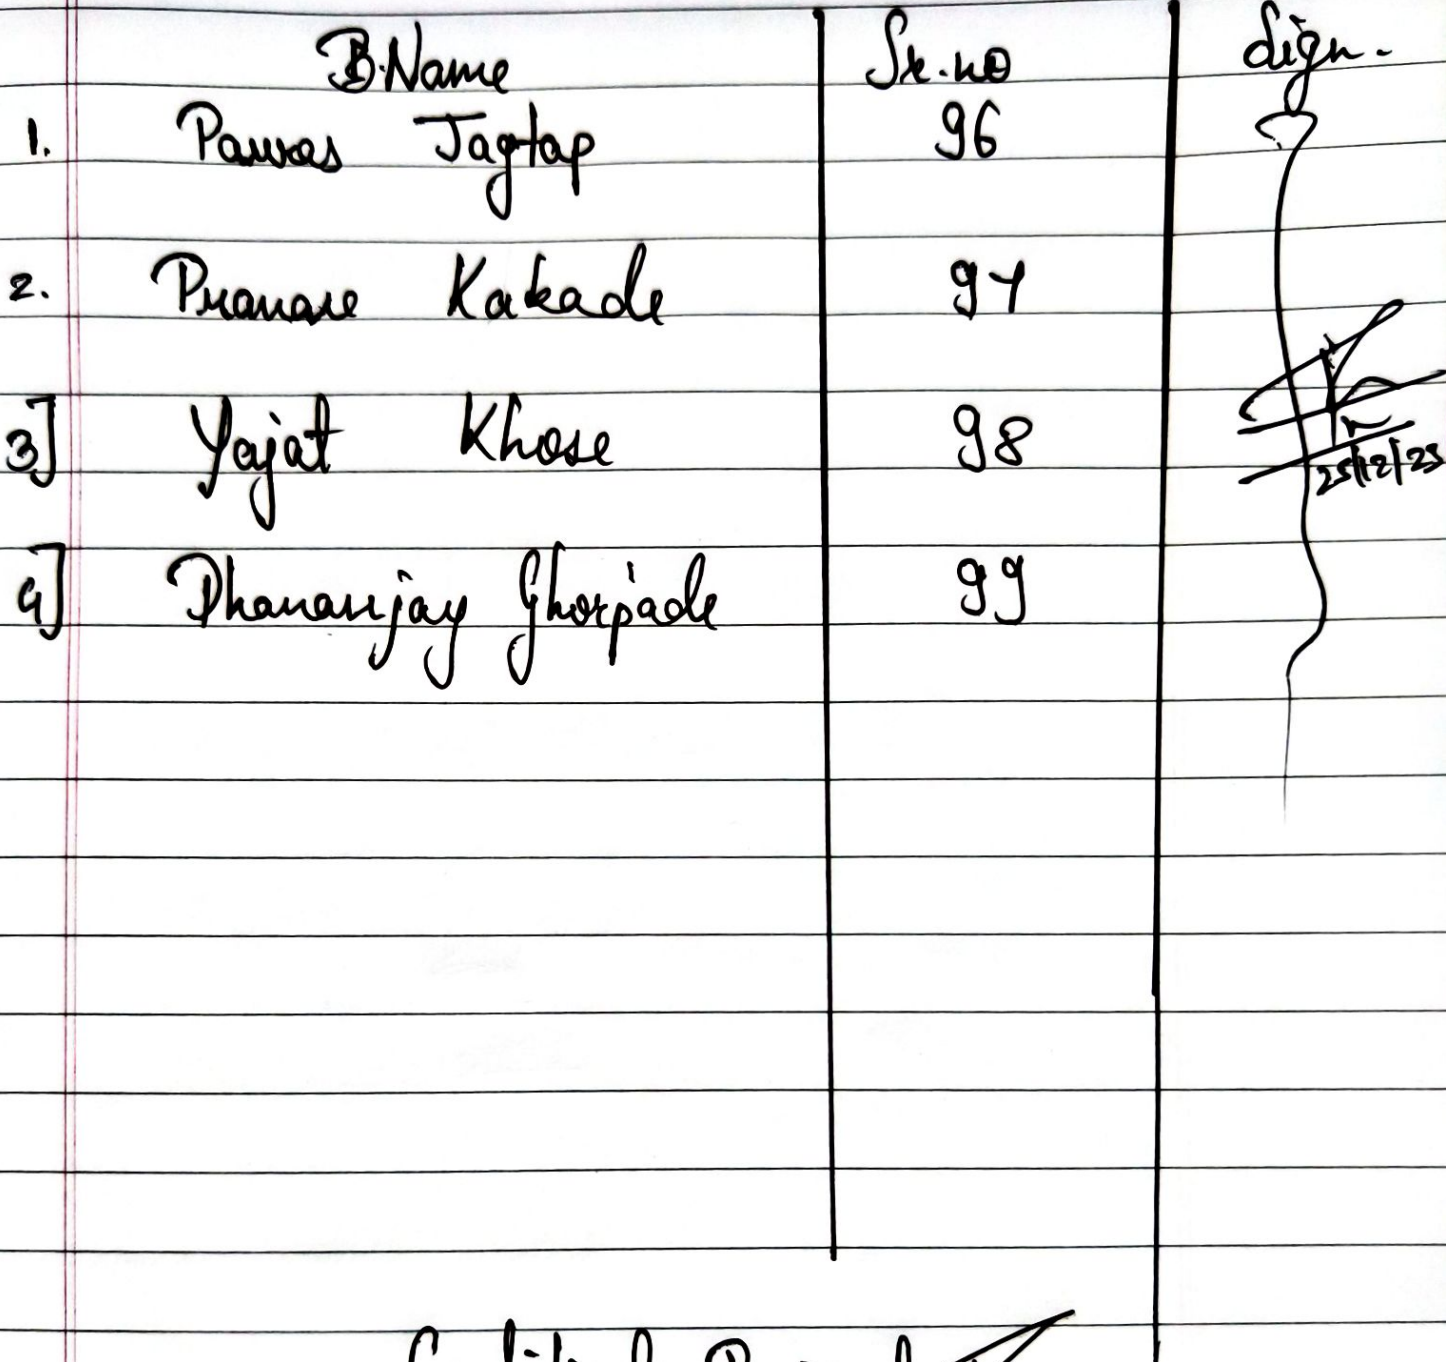 B.Name Sr.no Sign.
1. Pawas Jagtap 96
2. Pranav Kakade 97
3] Yajat Khose 98
25/12/25
4] Dhananjay Ghorpade 99